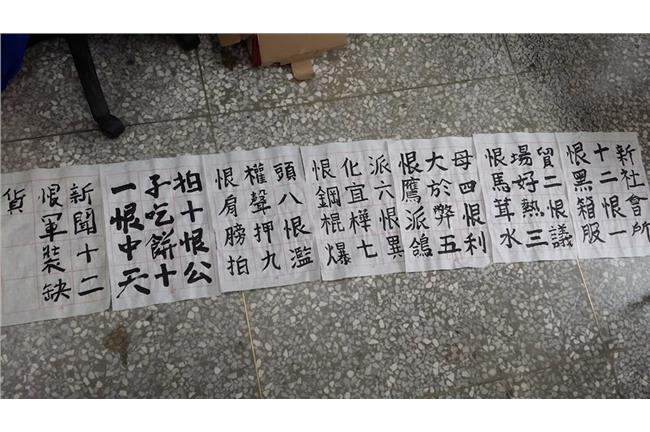 新社會所
十二恨一
恨黑箱服
貿二恨議
場好熱三
恨馬茸水
母四恨利
大於弊五
恨鷹派鴿
派六恨異
化宜樺七
恨鋼棍爆
頭八恨濫
權聲押九
恨肩膀拍
拍十恨公
子吃餅十
一恨中天
新聞十二
恨軍裝缺
貨